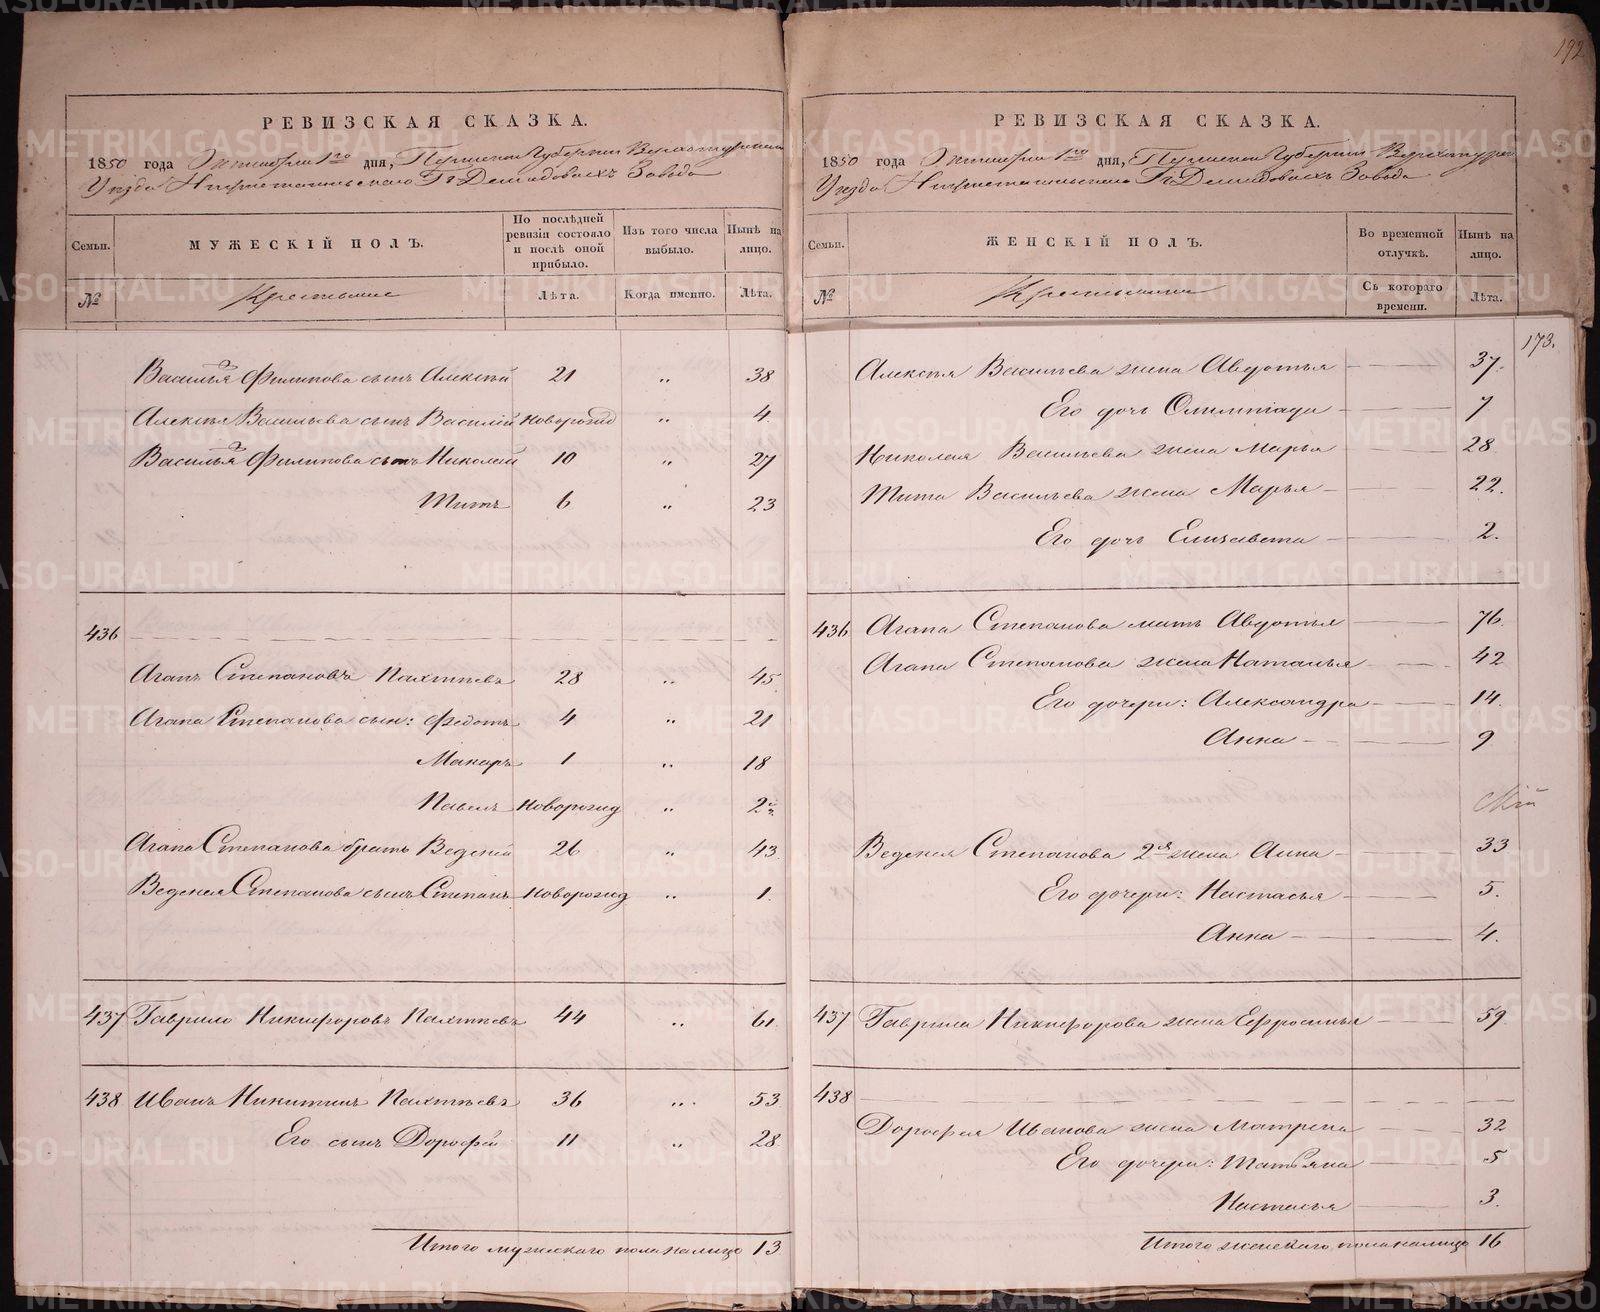 192
РЕВИЗСКАЯ СКАЗКА.
1850 года Октября 1го дня, Пермской Губерніи Верхотурскаго
Уѣзда Нижнетагильскаго Гг. Демидовыхъ Завода
Семьи.
МУЖЕСКІЙ ПОЛЪ.
По послѣдней ревизіи состояло и послѣ оной прибыло.
Изъ того числа выбыло.
Нынѣ на лицо.
№
Крестьяне
Лѣта.
Когда именно.
Лѣта.
Василья Филипова сынъ Алексѣй 21 „ 38
Алексѣя Васильева сынъ Василій Новорожд „ 4.
Василья Филипова сынъ Николай 10 „ 27
Титъ 6 „ 23
436
Агапъ Степановъ Пахтѣевъ 28 „ 45
Агапа Степанова сын: Федотъ 4 „ 21
Макаръ 1 „ 18
Павелъ Новорожд „ 2
Агапа Степанова братъ Ведений 26 „ 43
Веденея Степанова сынъ Степанъ Новорожд „ 1.
437 Гаврило Никифоровъ Пахтѣевъ 44 „ 61
438 Иванъ Никитинъ Пахтѣевъ 36 „ 53
Его сынъ Дорофѣй 11 „ 28
Итого мужескаго пола налицо 13
РЕВИЗСКАЯ СКАЗКА.
1850 года Октября 1го дня, Пермской Губерніи Верхотурск
Уѣзда Нижнетагильскаго Гг. Демидовыхъ Завода
Семьи.
ЖЕНСКІЙ ПОЛЪ.
Во временной отлучкѣ.
Нынѣ на лицо.
№
Крестьянки
Съ котораго времени.
Лѣта.
173.
Алексѣя Васильева жена Авдотья 37.
Его дочь Олимпіада 7
Николая Васильева жена Марья 28
Тита Васильева жена Марья 22.
Его дочь Елизавета 2.
436 Агапа Степанова мать Авдотья 76.
Агапа Степанова жена Наталья 42
Его дочери: Александра 14.
Анна 9
Веденея Степанова 2я жена Анна 33
Его дочери: Настасья 5.
Анна 4.
437 Гаврила Никифорова жена Ефросинья 59
438
Дорофея Иванова жена Матрена 32
Его дочери: Татьяна 5
Настасья 3.
Итого женскаго пола налицо 16
METRIKI.GASO-URAL.RU